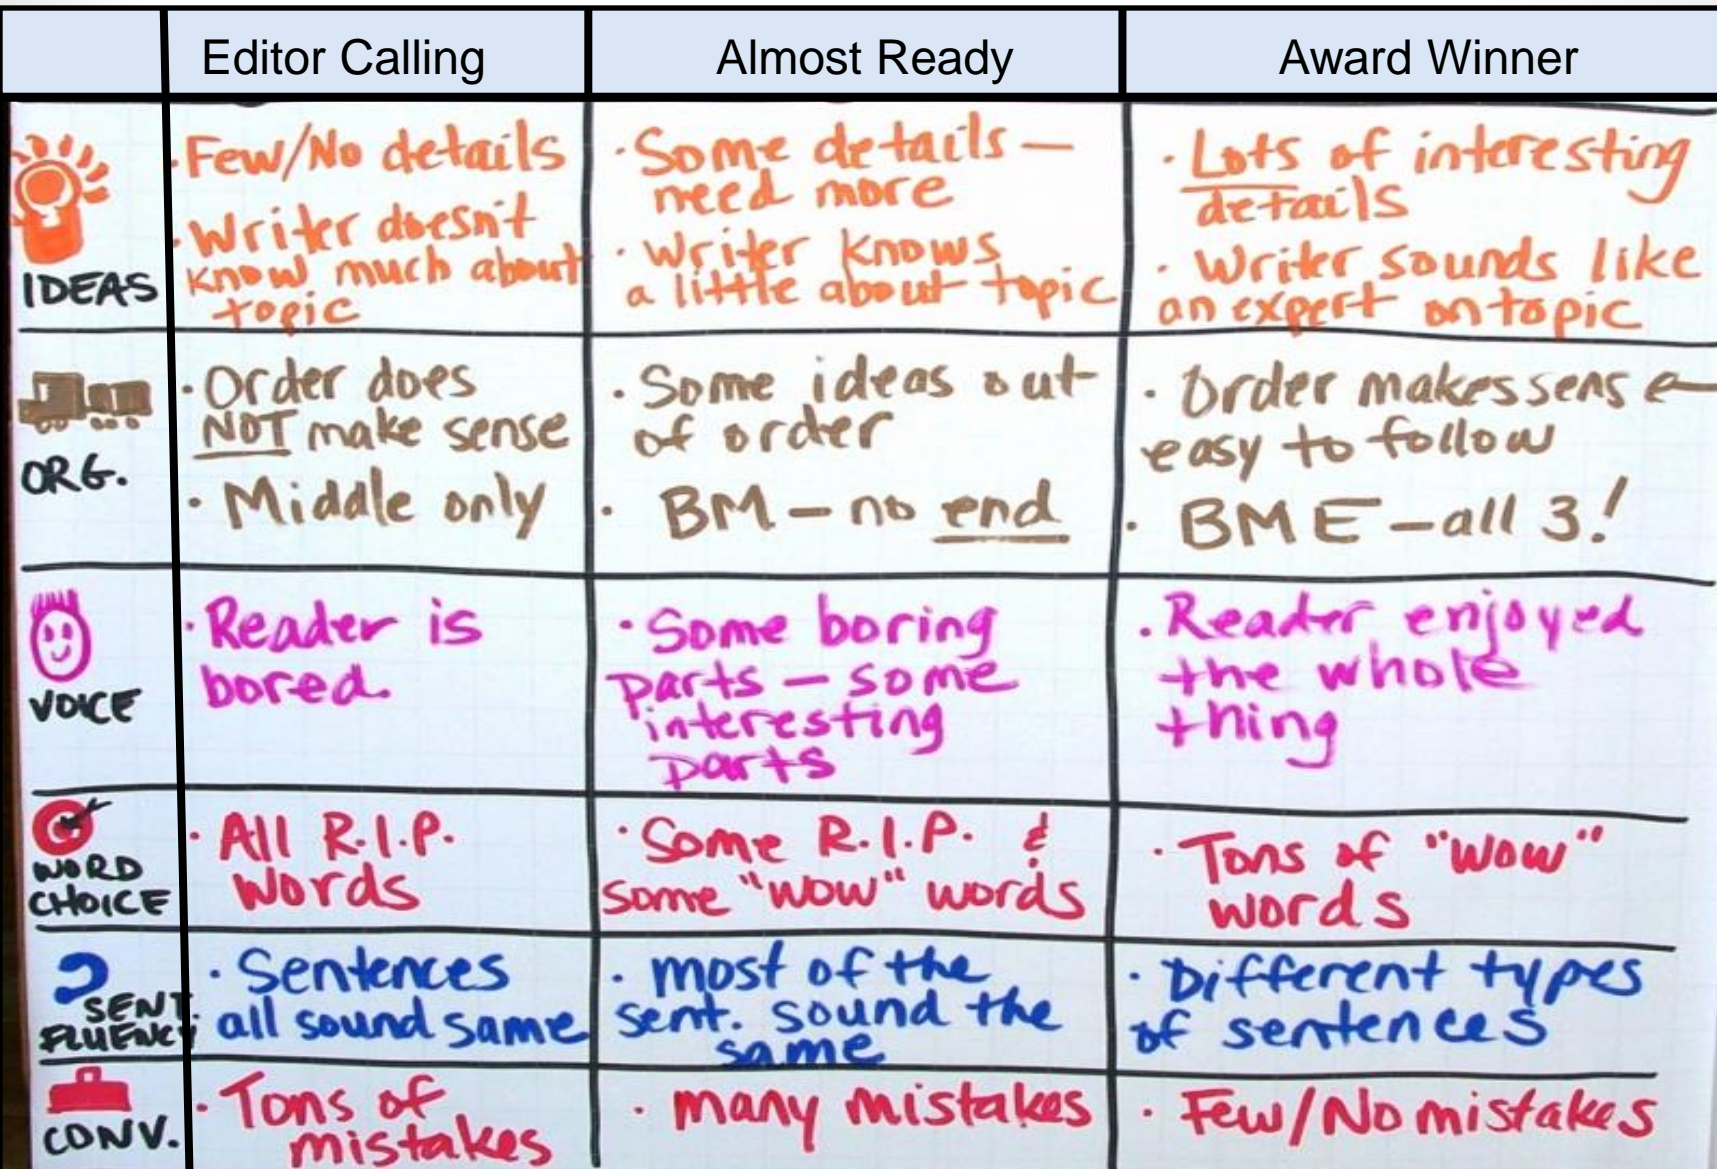 Editor Calling
Almost Ready
Award Winner
IDEAS
· Few/No details
· Writer doesn't
know much about
topic
· Some details —
need more
· Writer knows
a little about topic
· Lots of interesting
details
· Writer sounds like
an expert on topic
ORG.
· Order does
NOT make sense
· Middle only
· Some ideas out
of order
· BM — no end
· Order makes sense —
easy to follow
· BME — all 3!
VOICE
· Reader is
bored.
· Some boring
parts — some
interesting
parts
· Reader enjoyed
the whole
thing
WORD
CHOICE
· All R.I.P.
words
· Some R.I.P. &
some "wow" words
· Tons of "wow"
words
SENT.
FLUENCY
· Sentences
all sound same
· most of the
sent. sound the
same
· Different types
of sentences
CONV.
· Tons of
mistakes
· many mistakes
· Few/No mistakes